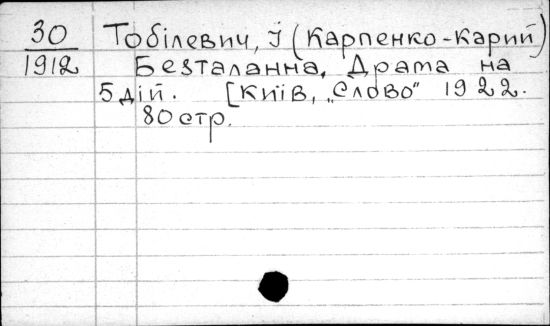 30 Тобілевич, І (Карпенко-Карий)
1912 Безталанна. Драма на
5 дій. [Київ, „Слово" 1922.
80 стр.